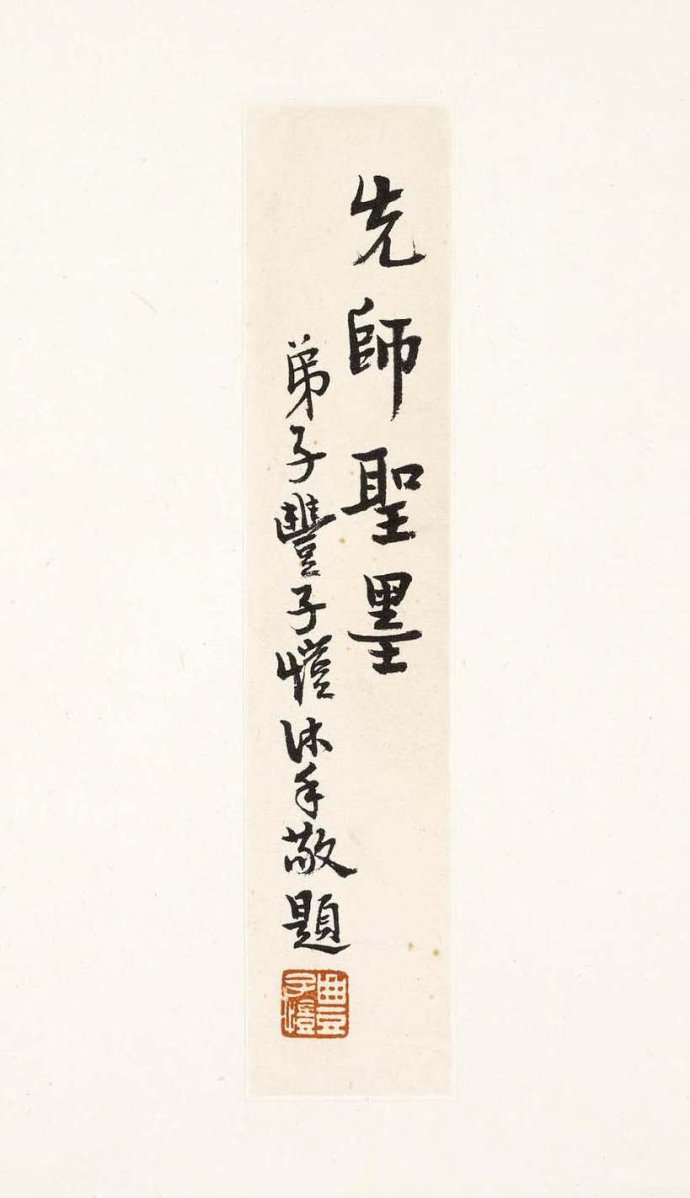 先師聖墨
弟子豐子愷沐手敬題
豐子愷